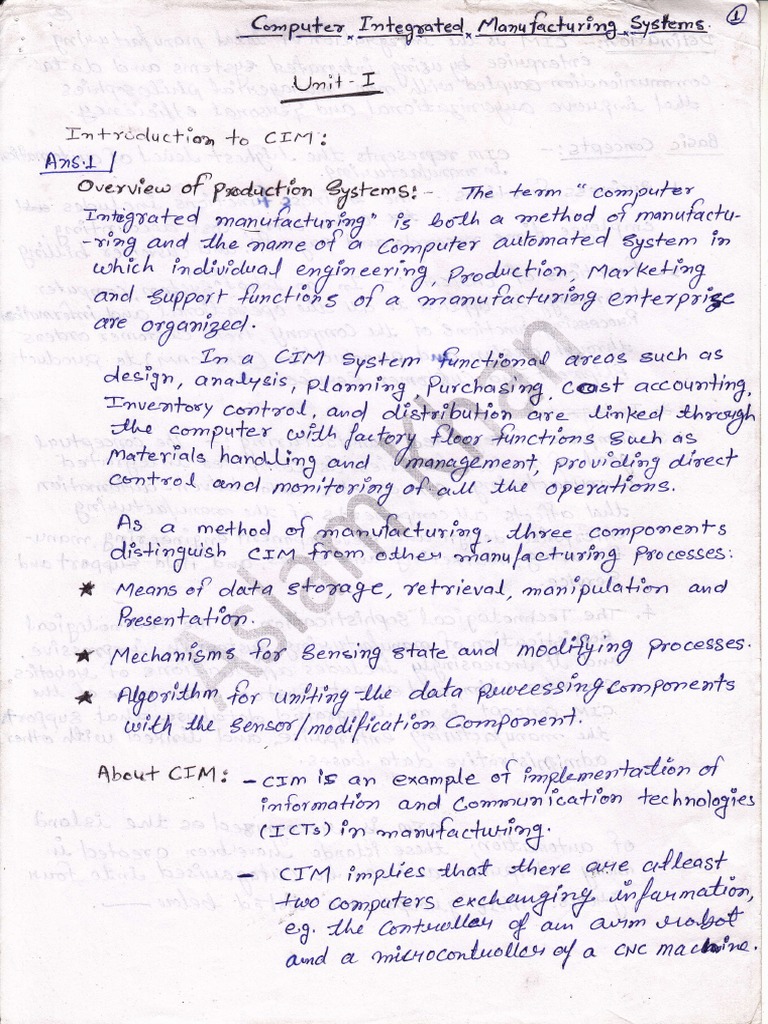 Computer Integrated Manufacturing Systems. 1
Unit - I
Introduction to CIM:
Ans.1
Overview of Production Systems:- The term "computer
Integrated manufacturing" is both a method of manufactu-
-ring and the name of a Computer automated System in
which individual engineering, Production, Marketing
and support functions of a manufacturing enterprise
are organized.
In a CIM System functional areas such as
design, analysis, planning Purchasing, cost accounting,
Inventory control, and distribution are linked through
the computer with factory floor functions such as
Materials handling and management, providing direct
control and monitoring of all the operations.
As a method of manufacturing, three components
distinguish CIM from other manufacturing Processes:
* Means of data storage, retrieval, manipulation and
Presentation.
* Mechanisms for sensing state and modifying processes.
* Algorithm for uniting the data processing components
with the sensor/modification Component.
About CIM: - CIM is an example of implementation of
information and Communication technologies
(ICTs) in manufacturing.
- CIM implies that there are atleast
two computers exchanging information,
e.g. the controller of an arm robot
and a microcontroller of a CNC machine.
Aslam Khan